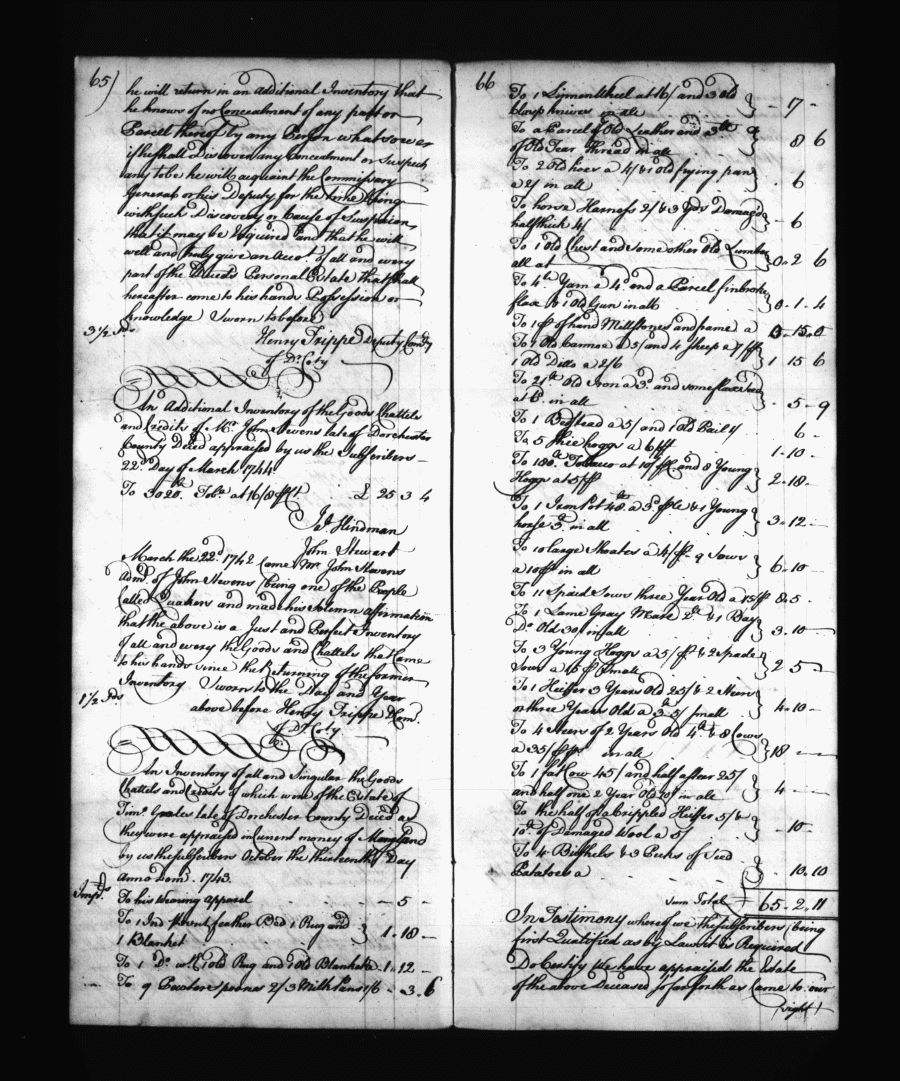 65)
he will return in an additional Inventory that
he knows of no Concealment of any part or
Parcell thereof by any Person whatsoever
if he shall Discover any Concealment or Suspect
any to be he will acquaint the Commissary
General or his Deputy for the time being
with such Discovery or Cause of Suspicion
that it may be Enquired and that he will
well and truly give an Acco.t of all and every
part of the Deceds Personal Estate that shall
hereafter come to his hands Possession or
knowledge Sworn to before
3 1/2 Sds
Henry Trippe Deputy Com.ry
of D.r Co.ty
An Additional Inventory of the Goods Chattels
and Credits of M.r John Stevens late of Dorchester
County Deced appraised by us the Subscribers
22.d Day of March 1744
To 3020 Tob.o at 16/8 £ 25 3 4
J.s Hindman
John Stewart
March the 22.d 1742 Came M.r John Stevens
Adm.r of John Stevens (being one of the People
Called Quakers and made his Solemn Affirmation
that the above is a Just and Perfect Inventory
of all and every the Goods and Chattels that Came
to his hands since the Returning of the former
Inventory Sworn to the Day and Year
1 1/2 Sds
above before Henry Trippe D Com.
of D.r Co.ty
An Inventory of all and Singular the Goods
Chattels and Credits of which were of the Estate of
Tim.o late of Dorchester County Deced as
they were appraised in Current money of Maryland
by us the Subscribers October the thirteenth Day
Anno Dom. 1743.
Imp.s
To his Wearing apparel - 5 -
To 1 feather Bed 1 Rug and
1 Blanket } 1.18 -
To 1 D.o with 1 old Rug and 1 old Blanket 1.12 -
To 9 Pewter spoones 2/3 Milk Pans 1/6 - 3.6
66
To 1 Linnen Wheel at 16/ and 3 old
knives in all } - 17 -
To a Parcel of Old Leather and
of Old thread in all } 8 6
To 2 old hoes a 4/ & 1 old frying pan
a 2/ in all } . 6
To horse Harness 2/ & 3 Yds Damaged
halfthick 4/ } - 6
To 1 old Chest and some other old Lumber
all at } 0.2 6
To 4 Yarn a 4d and a Parcel
flax & 1 old Gun in all } 0.1.4
To 1 p of hand Millstones and frame a 0.15.0
To 2 old a 5/ and 4 sheep a 7/
1 old Ditto a 2/6 } 1 15 6
To 21 old Iron a 3d and some flax seed
at 6d in all } . 5 - 9
To 1 Bedstead a 5/ and 1 old Pail 1/ 6 -
To 5 hoggs a 6/ 1.10 -
To 180 Tobacco at 10/ and 8 Young
Hoggs at 5/ } 2.18 -
To 1 Iron Pot 48 a 3d & 1 Young
horse 3. in all } 3.12.-
To 10 large Shoates a 4/ 9 Sows
a 10/ in all } 6.10 -
To 11 Spaid Sows three Year Old a 15/ 8.5 -
To 1 Lame Gray Mare & 1 Bay
D.o old 30 in all } 3.10 -
To 3 Young Hoggs a 5/ & 2 Spade
Sows a 15 in all } 2 5 -
To 1 Heiffer 3 Years Old 25/ & 2 Steers
or three Years Old a in all } 4.10 -
To 4 Steers of 2 Years Old & 8 Cows
a 35/ in all } 18 -
To 1 fat Cow 45/ and half a steer 25/
and half one 2 Year Old in all } 4 -
To the half of a crippled Heiffer 5/ &
10 of Damaged Wool a 5/ } - 10 -
To 4 Bushels & 3 Pecks of Seed
Potatoes a } . 10.10
Sum Total 65.2.11
In Testimony whereof we the Subscribers (being
first Qualified as by Law it is Required
Do Certify We have appraised the Estate
of the above Deceased so far forth as Came to our
(Sight)